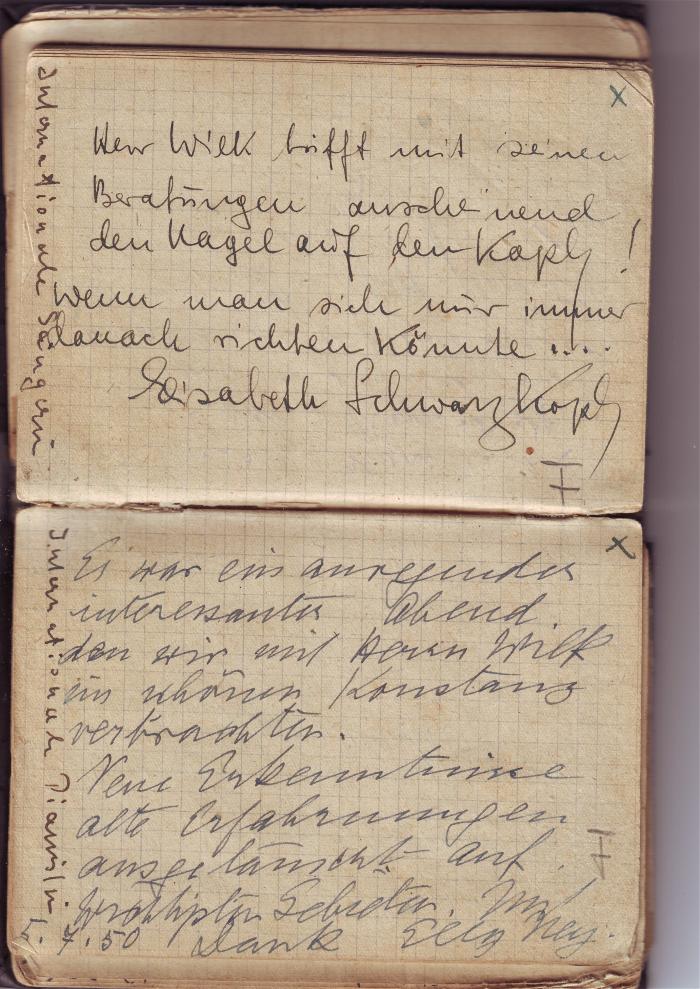 Internationale Sängerin
x
Herr Wilk trifft mit seinen
Beratungen anscheinend
den Nagel auf den Kopf!
wenn man sich nur immer
danach richten könnte ....
Elisabeth Schwarzkopf
H
x
Internationale Pianistin
Es war ein anregender
interessanter Abend.
den wir mit Herrn Wilk
im schönen Konstanz
verbrachten.
Neue Erkenntnisse
alte Erfahrungen
ausgetauscht auf
Gebieten. Mit
Dank Elly Ney.
5.7.50
H